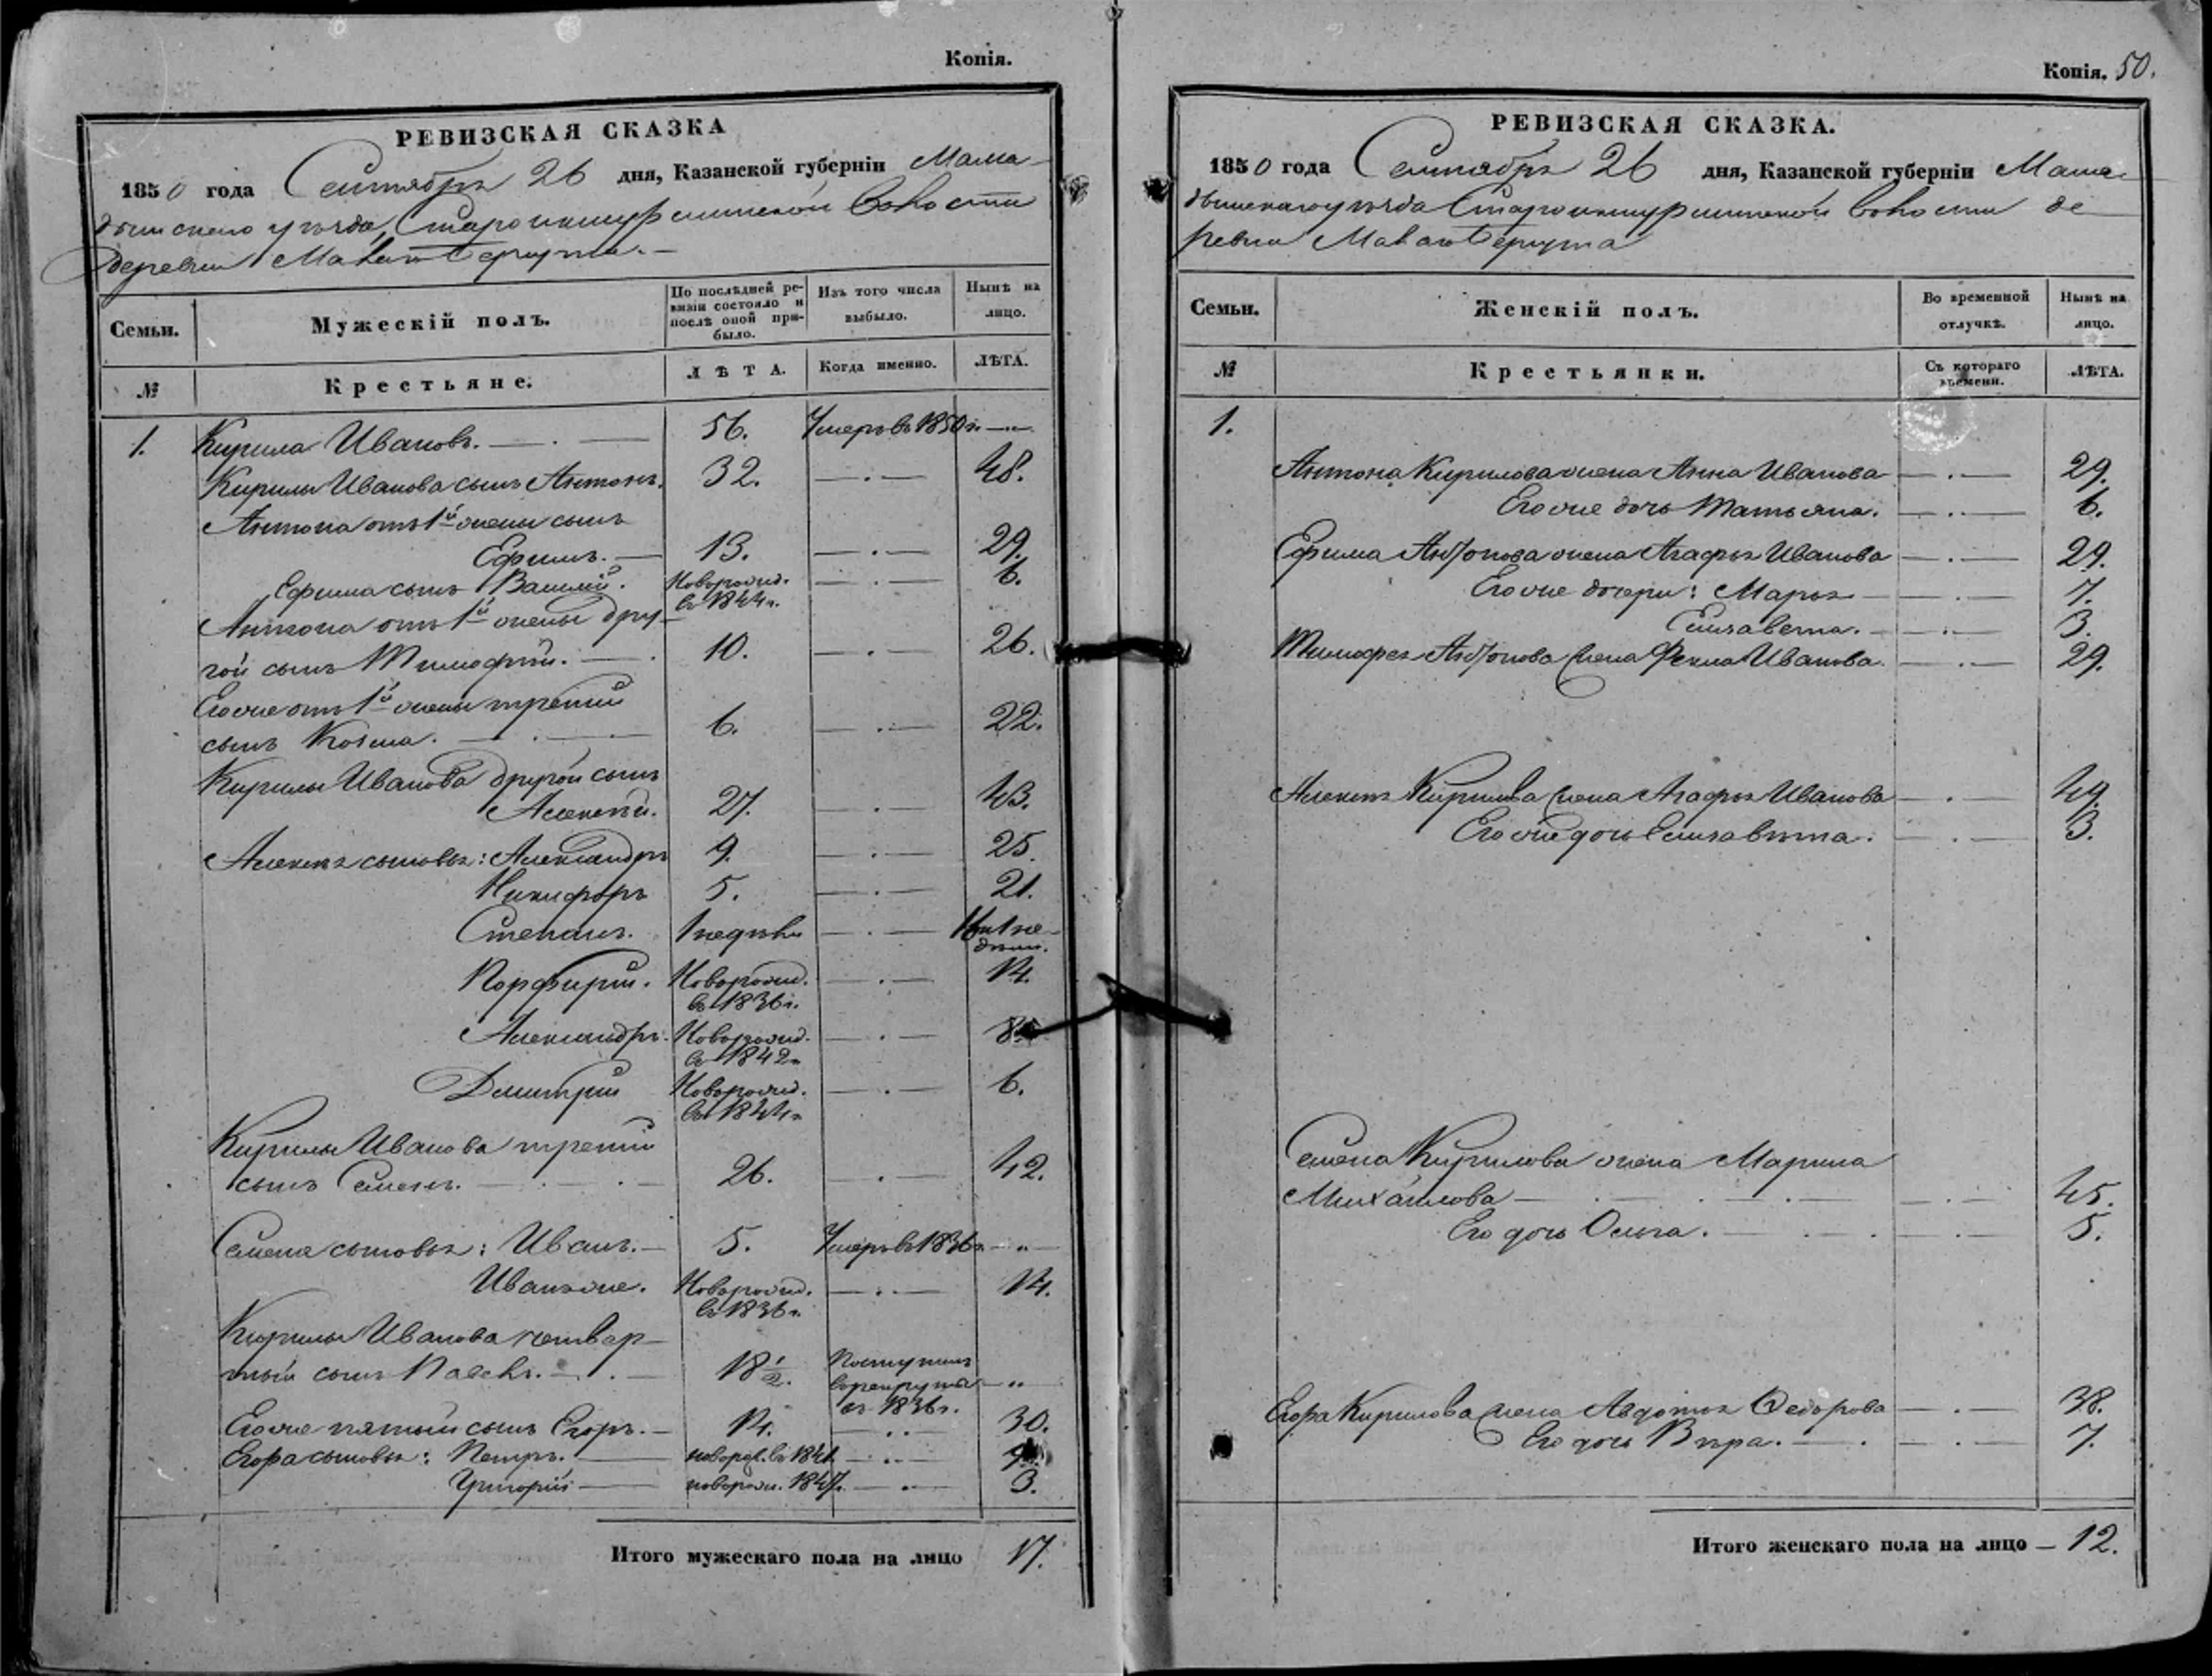 Копія.
РЕВИЗСКАЯ СКАЗКА
1850 года Сентября 26 дня, Казанской губерніи Мама-
дышскаго уѣзда, Волости
деревни
Семьи.
Мужескій полъ.
По послѣдней ре-
визіи состояло и
послѣ оной при-
было.
Изъ того числа
выбыло.
Нынѣ на
лицо.
№
Крестьяне.
ЛѢТА.
Когда именно.
ЛѢТА.
1. Кирила Ивановъ. 56. Умеръ въ 1850 г.
Кирилы Иванова сынъ Антонъ. 32. 48.
Антона отъ 1й жены сынъ
Ефимъ. 13. 29.
Ефима сынъ Василій. Новорожд. 6.
въ 1844 г.
Антона отъ 1й жены дру-
гой сынъ Тимофей. 10. 26.
Его же отъ 1й жены третій
сынъ Козма. 6. 22.
Кирилы Иванова другой сынъ
Алексѣй. 27. 43.
Алексѣя сыновья: Александръ 9. 25.
Никифоръ 5. 21.
Степанъ. 1 недѣли 16 и 1 не-
дѣли.
Порфирій. Новорожд. 14.
въ 1836 г.
Александръ. Новорожд. 8.
въ 1842 г.
Дмитрій Новорожд. 6.
въ 1844 г.
Кирилы Иванова третій
сынъ Семенъ. 26. 42.
Семена сыновья: Иванъ. 5. Умеръ въ 1836 г.
Иванъ же. Новорожд. 14.
въ 1836 г.
Кирилы Иванова четвер-
тый сынъ Павелъ. 18 1/2. Поступилъ
въ рекруты
въ 1836 г.
Его же пятый сынъ Егоръ. 14. 30.
Егора сыновья: Петръ. новорож. въ 1841 9.
Григорій новорож. 1847. 3.
Итого мужескаго пола на лицо 17.
Копія. 50.
РЕВИЗСКАЯ СКАЗКА.
1850 года Сентября 26 дня, Казанской губерніи Мама-
дышскаго уѣзда Волости де-
ревни
Семьи.
Женскій полъ.
Во временной
отлучкѣ.
Нынѣ на
лицо.
№
Крестьянки.
Съ котораго
времени.
ЛѢТА.
1.
Антона Кирилова жена Анна Иванова 29.
Его же дочь Татьяна. 6.
Ефима Антонова жена Агафья Иванова 29.
Его же дочери: Марья 7.
Елизавета. 3.
Тимофея Антонова жена Фекла Иванова. 29.
Алексѣя Кирилова жена Агафья Иванова 49.
Его же дочь Елизавѣта. 3.
Семена Кирилова жена Марина
Михайлова 45.
Его дочь Ольга. 5.
Егора Кирилова жена Авдотья Ѳедорова 38.
Его дочь Вѣра. 7.
Итого женскаго пола на лицо — 12.